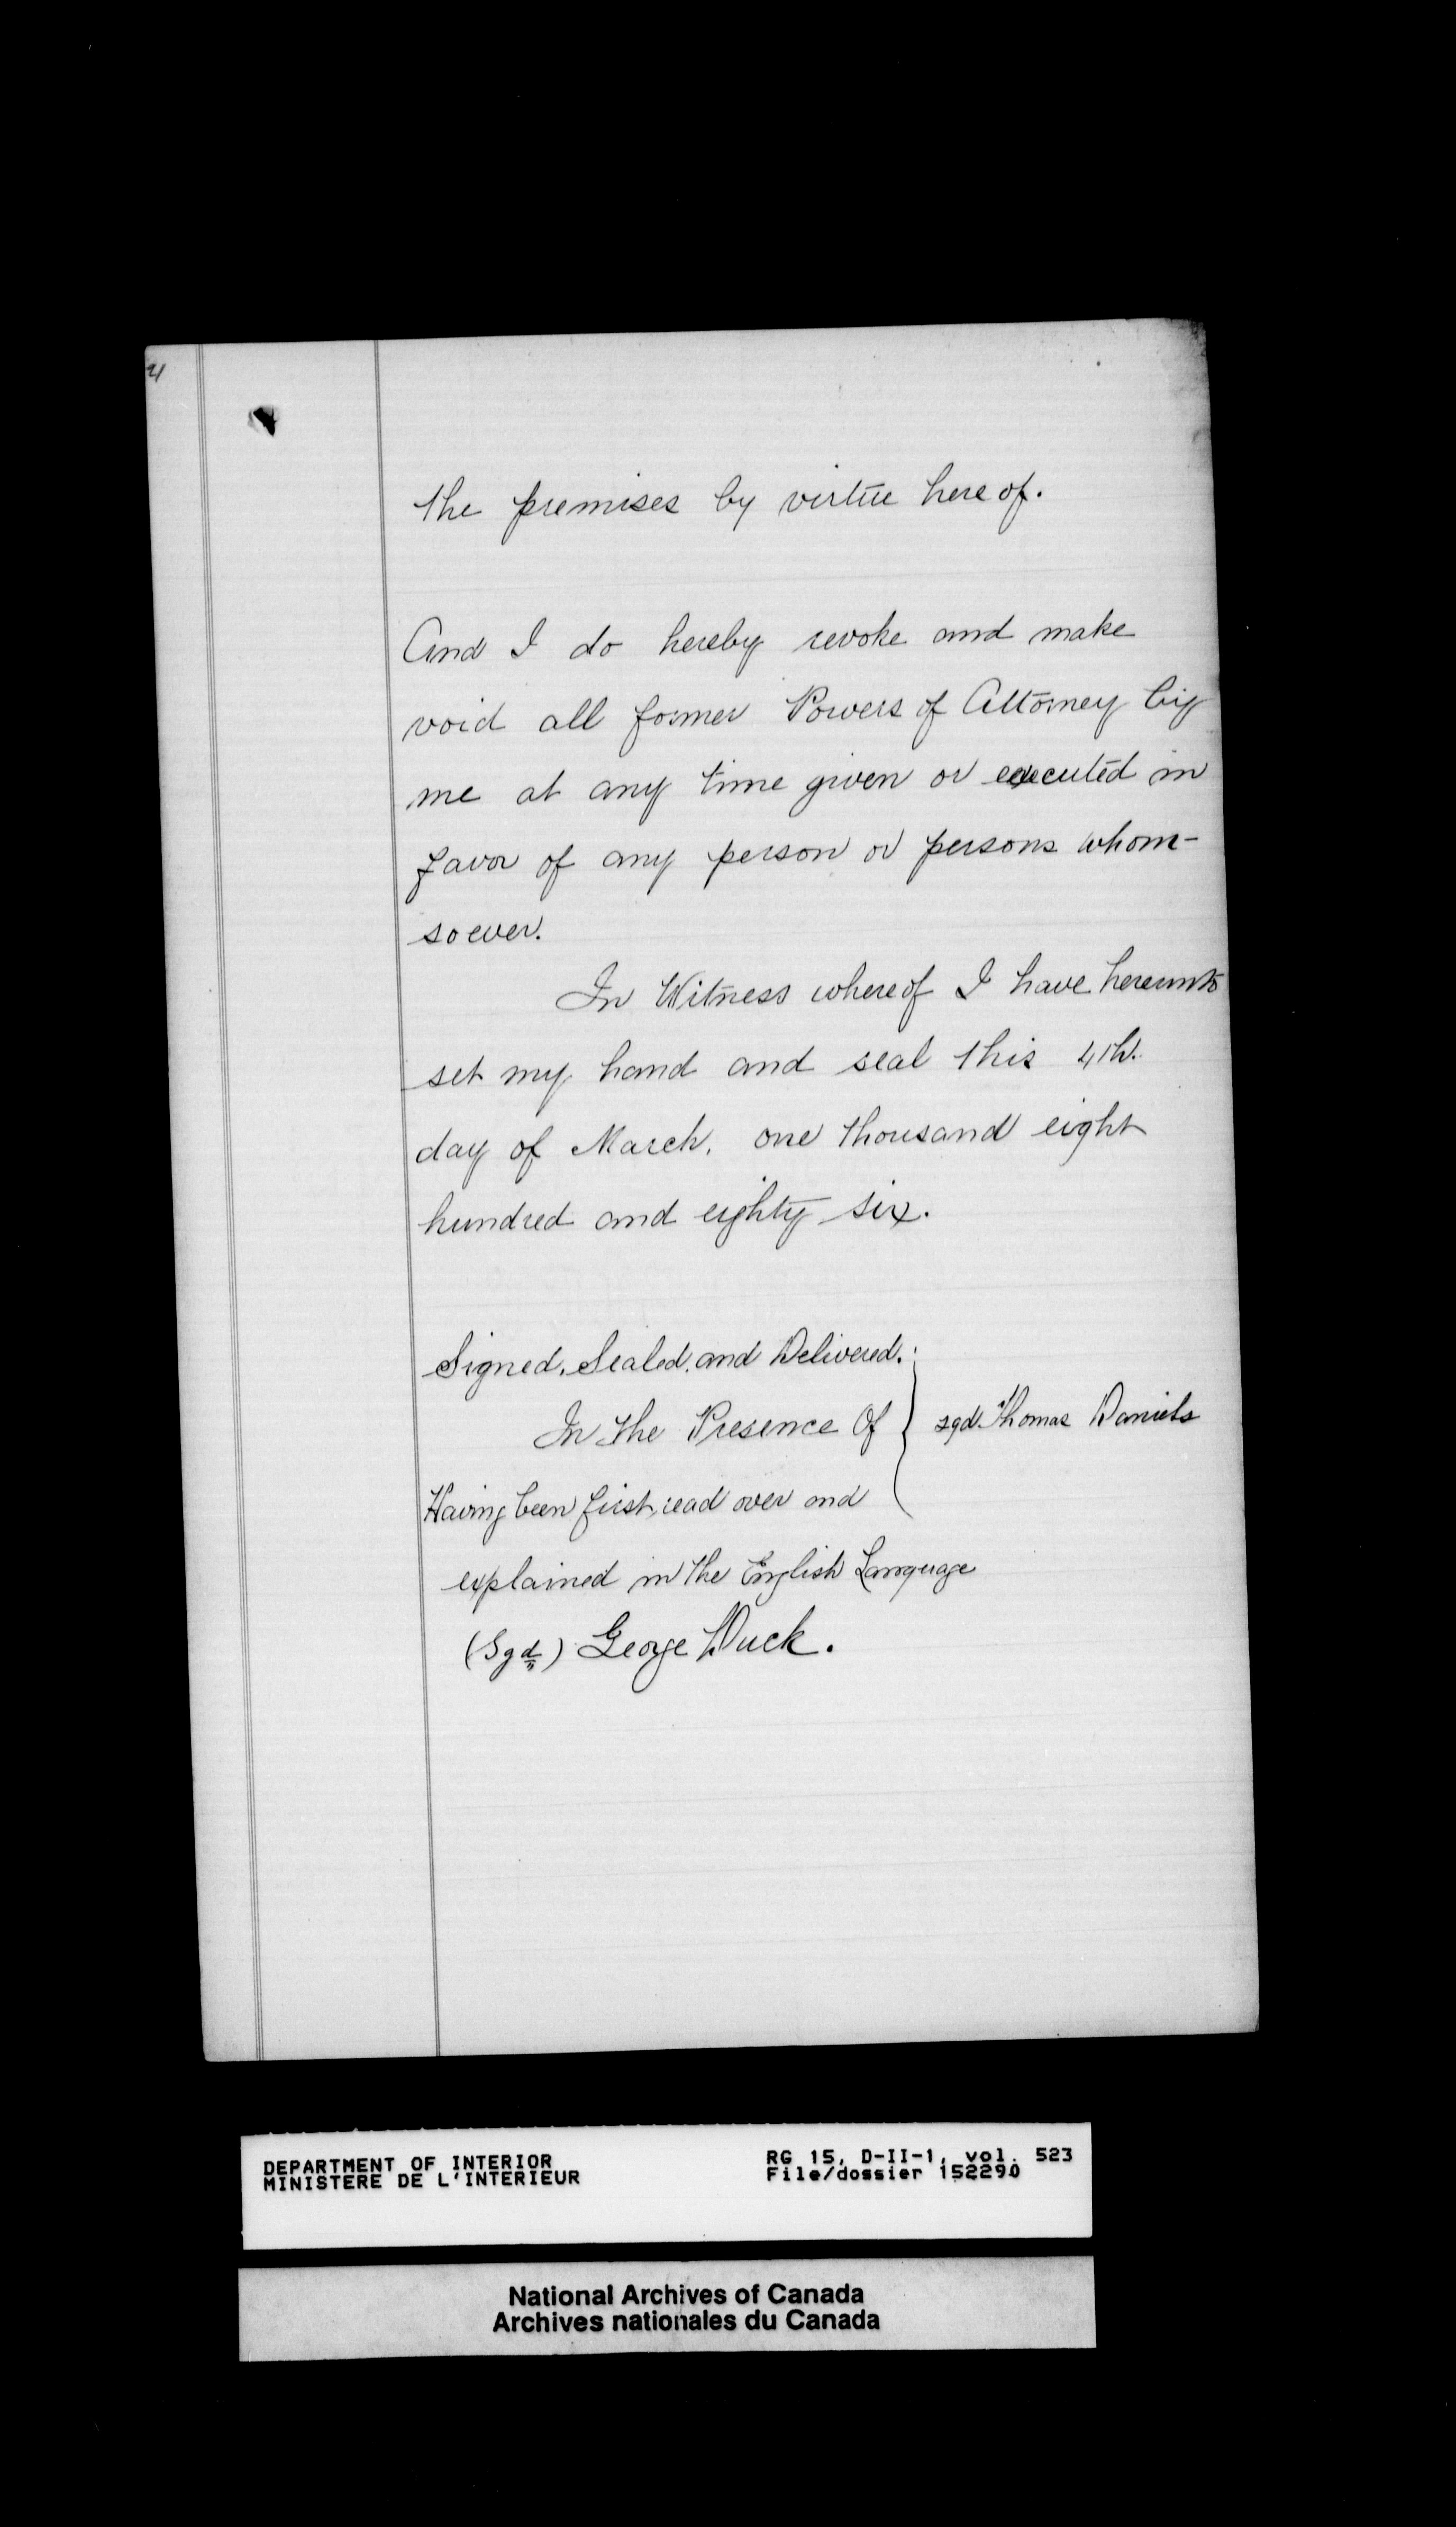 the premises by virtue hereof.
And I do hereby revoke and make
void all former Powers of Attorney by
me at any time given or executed in
favor of any person or persons whom-
soever.
In Witness whereof I have hereunto
set my hand and seal this 4th.
day of March, one thousand eight
hundred and eighty six.
Signed, Sealed, and Delivered.
In the Presence Of } sgd. Thomas Daniels
Having been first read over and
explained in the English Language
(Sgd) George Duck.
DEPARTMENT OF INTERIOR RG 15, D-II-1, vol. 523
MINISTERE DE L'INTERIEUR File/dossier 152290
National Archives of Canada
Archives nationales du Canada